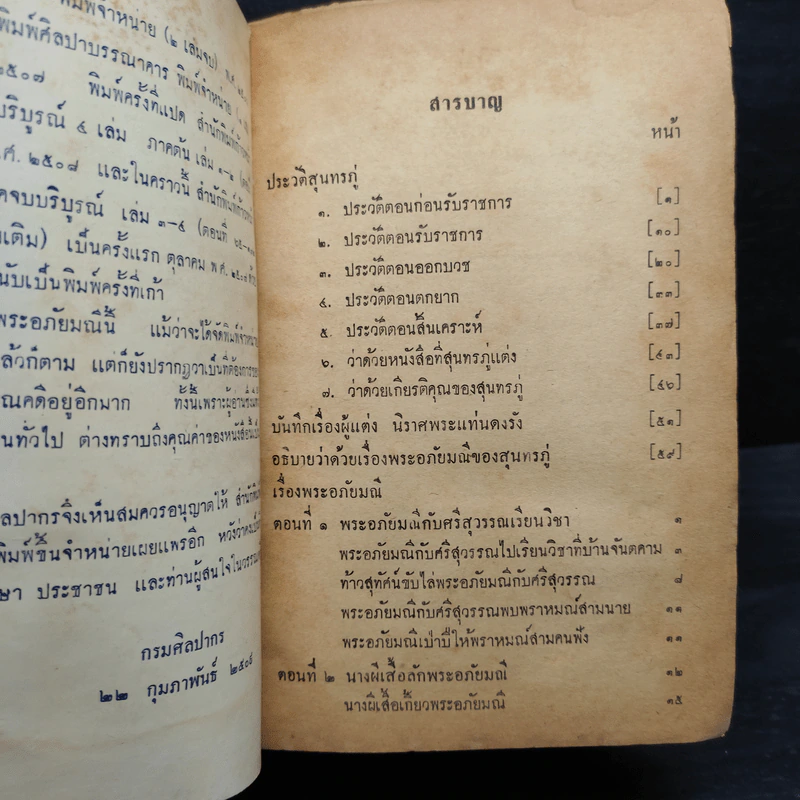 พิมพ์จำหน่าย (๒ เล่มจบ) พ.ศ.
พิมพ์ศิลปาบรรณาคาร พิมพ์จำหน่าย
๒๕๐๗ พิมพ์ครั้งที่แปด สำนักพิมพ์
บริบูรณ์ ๔ เล่ม ภาคต้น เล่ม ๑-๒
ศ. ๒๕๐๘ และในคราวนี้ สำนักพิมพ์
จบบริบูรณ์ เล่ม ๓-๔ (ตอนที่
เติม) เป็นครั้งแรก ตุลาคม พ.ศ. ๒๕๐๘
นับเป็นพิมพ์ครั้งที่เก้า
พระอภัยมณีนี้ แม้ว่าจะได้จัดพิมพ์จำหน่าย
ล้วก็ตาม แต่ก็ยังปรากฏว่าเป็นที่ต้องการของ
ณคดีอยู่อีกมาก ทั้งนี้เพราะผู้อ่าน
นทั่วไป ต่างทราบถึงคุณค่าของหนังสือ
ลปากรจึ่งเห็นสมควรอนุญาตให้ สำนักพิมพ์
พิมพ์ขึ้นจำหน่ายเผยแพร่อีก หวังว่าคง
ษา ประชาชน และท่านผู้สนใจในวรรณ
กรมศิลปากร
๒๒ กุมภาพันธ์
สารบาญ
หน้า
ประวัติสุนทรภู่
๑. ประวัติตอนก่อนรับราชการ [๑]
๒. ประวัติตอนรับราชการ [๑๐]
๓. ประวัติตอนออกบวช [๒๐]
๔. ประวัติตอนตกยาก [๓๓]
๕. ประวัติตอนสิ้นเคราะห์ [๓๗]
๖. ว่าด้วยหนังสือที่สุนทรภู่แต่ง [๔๓]
๗. ว่าด้วยเกียรติคุณของสุนทรภู่ [๔๖]
บันทึกเรื่องผู้แต่ง นิราศพระแท่นดงรัง [๕๑]
อธิบายว่าด้วยเรื่องพระอภัยมณีของสุนทรภู่ [๕๙]
เรื่องพระอภัยมณี
ตอนที่ ๑ พระอภัยมณีกับศรีสุวรรณเรียนวิชา ๑
พระอภัยมณีกับศรีสุวรรณไปเรียนวิชาที่บ้านจันตคาม ๓
ท้าวสุทัศน์ขับไล่พระอภัยมณีกับศรีสุวรรณ ๘
พระอภัยมณีกับศรีสุวรรณพบพราหมณ์สามนาย ๑๑
พระอภัยมณีเป่าปี่ให้พราหมณ์สามคนฟัง ๑๑
ตอนที่ ๒ นางผีเสื้อลักพระอภัยมณี ๑๒
นางผีเสื้อเกี้ยวพระอภัยมณี ๑๕